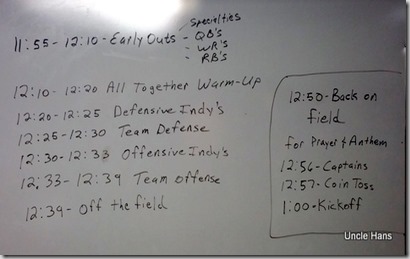 11:55-12:10-Early Outs - Specialties
- QB's
- WR's
- RB's
12:10-12:20 All Together Warm-Up
12:20-12:25 Defensive Indy's
12:25-12:30 Team Defense
12:30-12:33 Offensive Indy's
12:33-12:39 Team Offense
12:39-Off the field
12:50-Back on
field
for Prayer & Anthem
12:56-Captains
12:57-Coin Toss
1:00-Kickoff
Uncle Hans